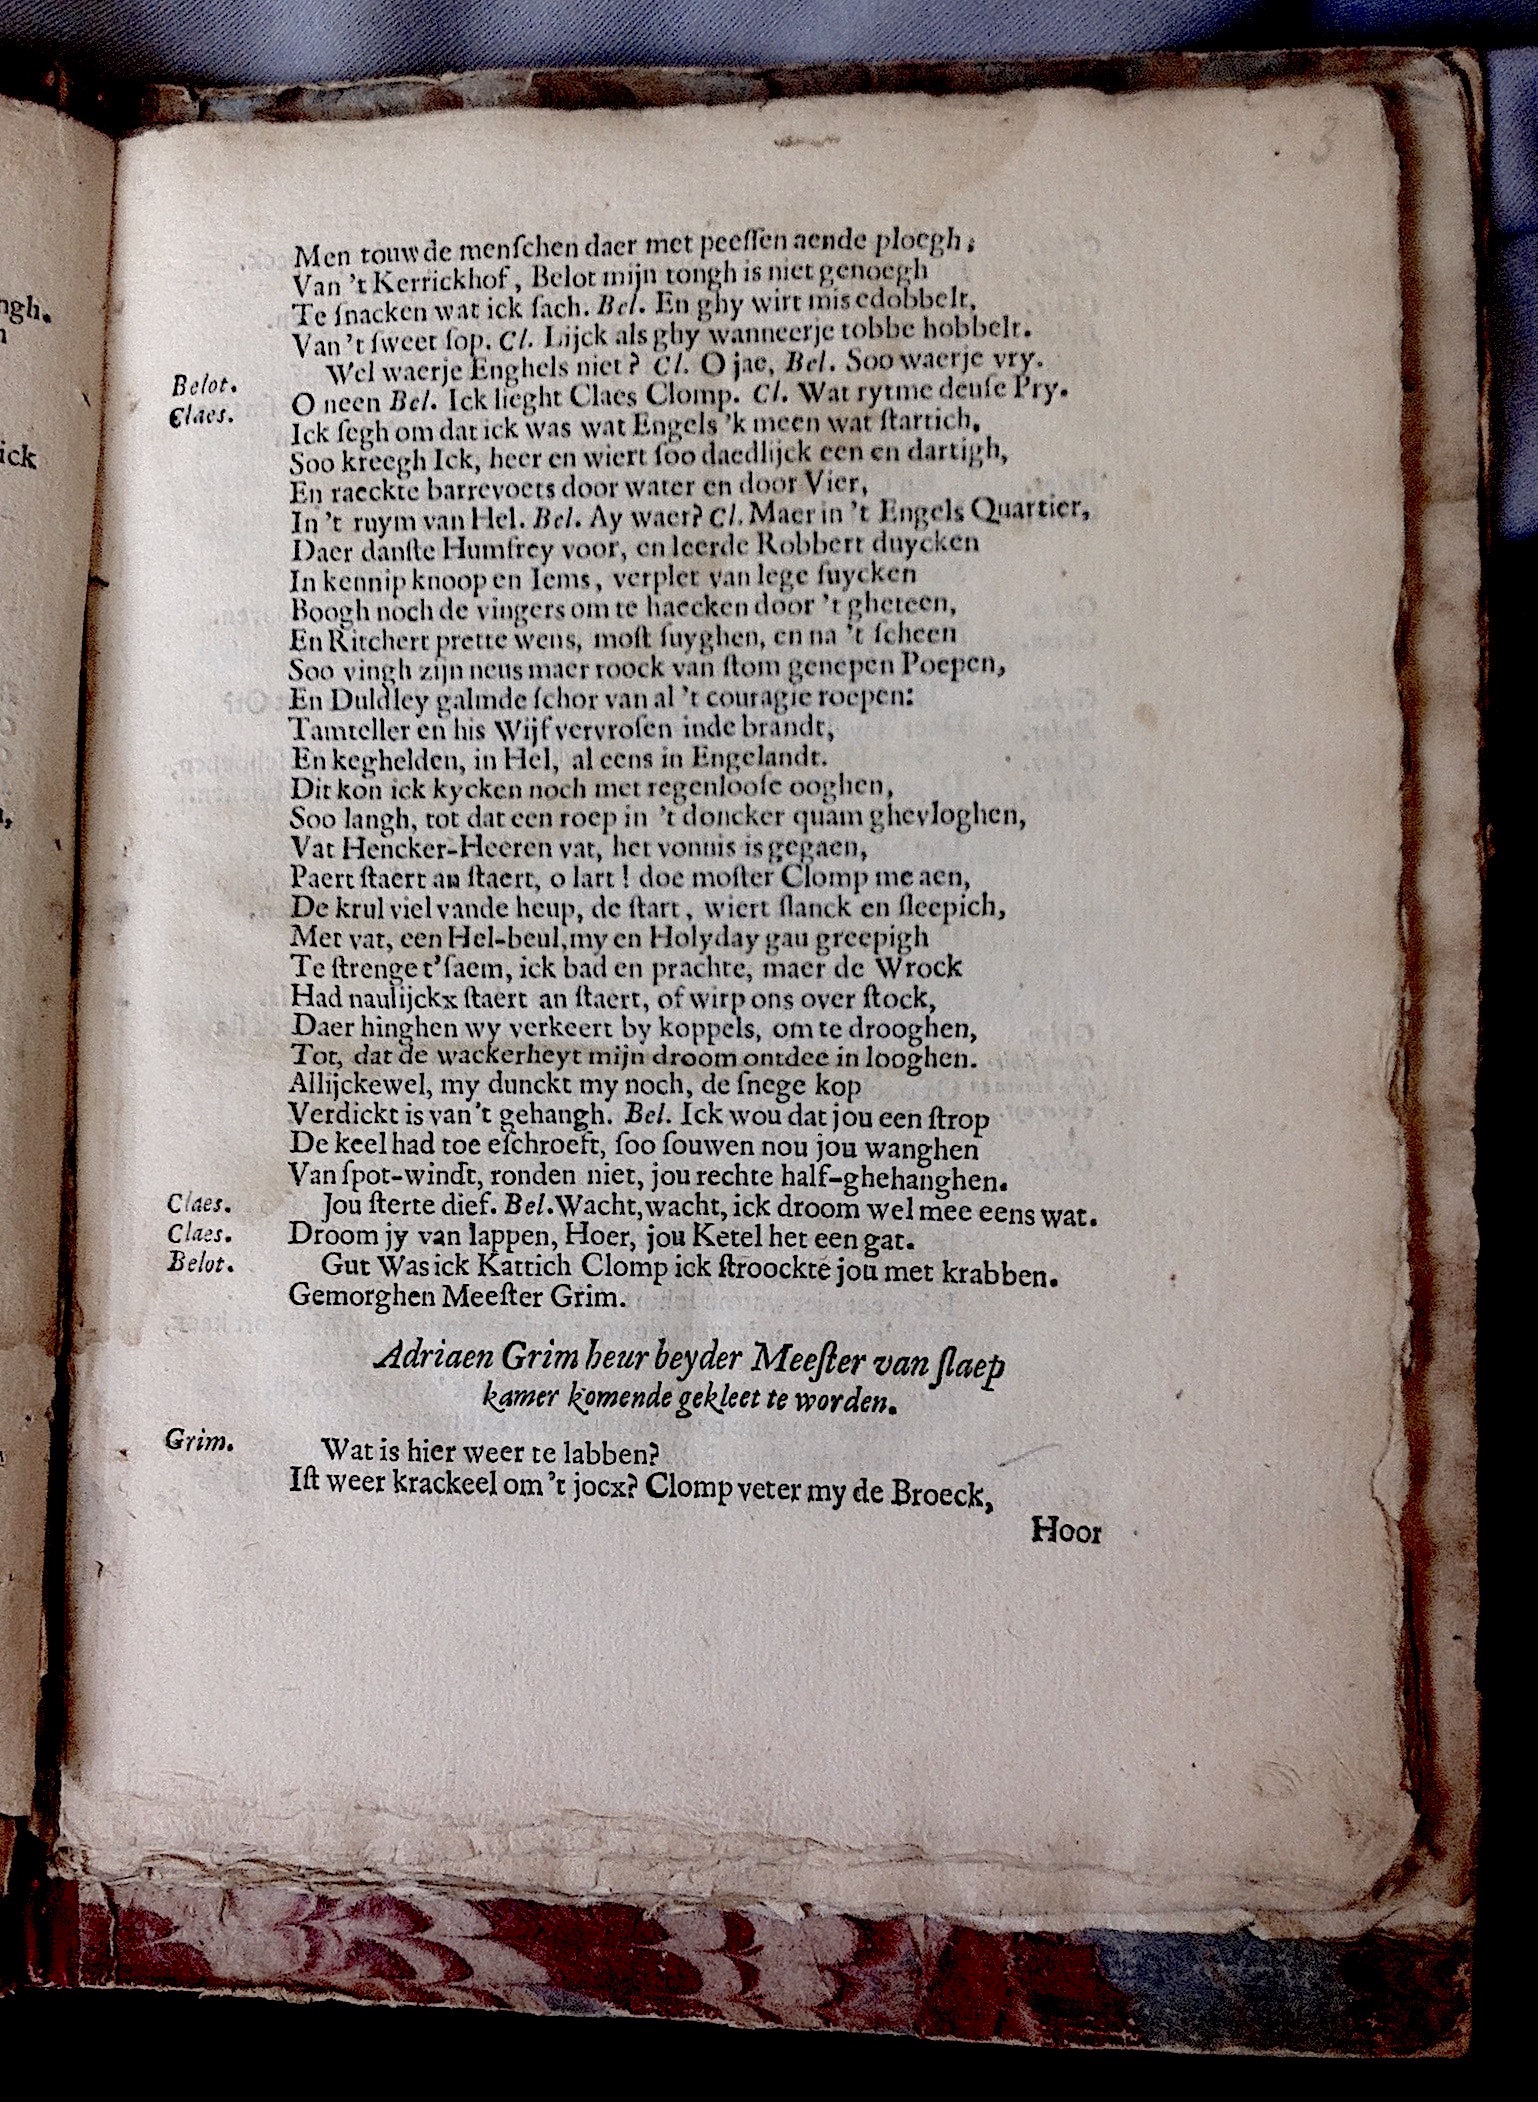 3
Men touw de menſchen daer met peeſſen aende ploegh;
Van 't Kerrickhof, Belot mijn tongh is niet genoegh
Te ſnacken wat ick ſach. Bel. En ghy wirt mis edobbelt,
Van 't ſweet ſop. Cl. Lijck als ghy wanneerje tobbe hobbelt.
Belot. Wel waerje Enghels niet? Cl. O jae, Bel. Soo waerje vry.
Claes. O neen Bel. Ick lieght Claes Clomp. Cl. Wat rytme deuſe Pry.
Ick ſegh om dat ick was wat Engels 'k meen wat ſtartich,
Soo kreegh Ick, heer en wiert ſoo daedlijck een en dartigh,
En raeckte barrevoets door water en door Vier,
In 't ruym van Hel. Bel. Ay waer? Cl. Maer in 't Engels Quartier,
Daer danſte Humfrey voor, en leerde Robbert duycken
In kennip knoop en Iems, verplet van lege fuycken
Boogh noch de vingers om te haecken door 't gheteen,
En Ritchert prette wens, moſt ſuyghen, en na 't ſcheen
Soo vingh zijn neus maer roock van ſtom genepen Poepen,
En Duldley galmde ſchor van al 't couragie roepen:
Tamteller en his Wijf vervroſen inde brandt,
En keghelden, in Hel, al eens in Engelandt.
Dit kon ick kycken noch met regenlooſe ooghen,
Soo langh, tot dat een roep in 't doncker quam ghevloghen,
Vat Hencker-Heeren vat, het vonnis is gegaen,
Paert ſtaert an ſtaert, o lart! doe moſter Clomp me aen,
De krul viel vande heup, de ſtart, wiert ſlanck en ſleepich,
Met vat, een Hel-beul, my en Holyday gau greepigh
Te ſtrenge t'ſaem, ick bad en prachte, maer de Wrock
Had naulijckx ſtaert an ſtaert, of wirp ons over ſtock,
Daer hinghen wy verkeert by koppels, om te drooghen,
Tot, dat de wackerheyt mijn droom ontdee in looghen.
Allijckewel, my dunckt my noch, de ſnege kop
Verdickt is van 't gehangh. Bel. Ick wou dat jou een ſtrop
De keel had toe eſchroeft, ſoo ſouwen nou jou wanghen
Van ſpot-windt, ronden niet, jou rechte half-ghehanghen.
Claes. Jou ſterte dief. Bel. Wacht, wacht, ick droom wel mee eens wat.
Claes. Droom jy van lappen, Hoer, jou Ketel het een gat.
Belot. Gut Was ick Kattich Clomp ick ſtroockte jou met krabben.
Gemorghen Meeſter Grim.
Adriaen Grim heur beyder Meeſter van ſlaep
kamer komende gekleet te worden.
Grim. Wat is hier weer te labben?
Iſt weer krackeel om 't jocx? Clomp veter my de Broeck,
Hoor